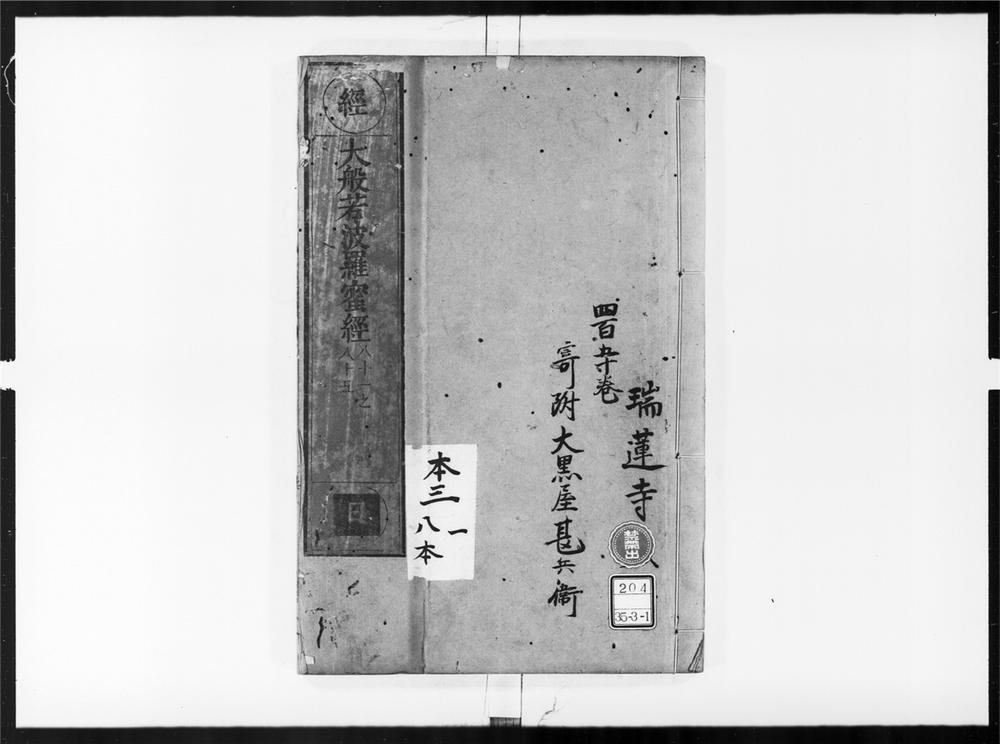 瑞蓮寺
四百九十巻
寄附大黒屋甚兵衛
禁帶出
204
35-3-1
經
大般若波羅蜜經
八十一之
八十五
日
本三一
八本